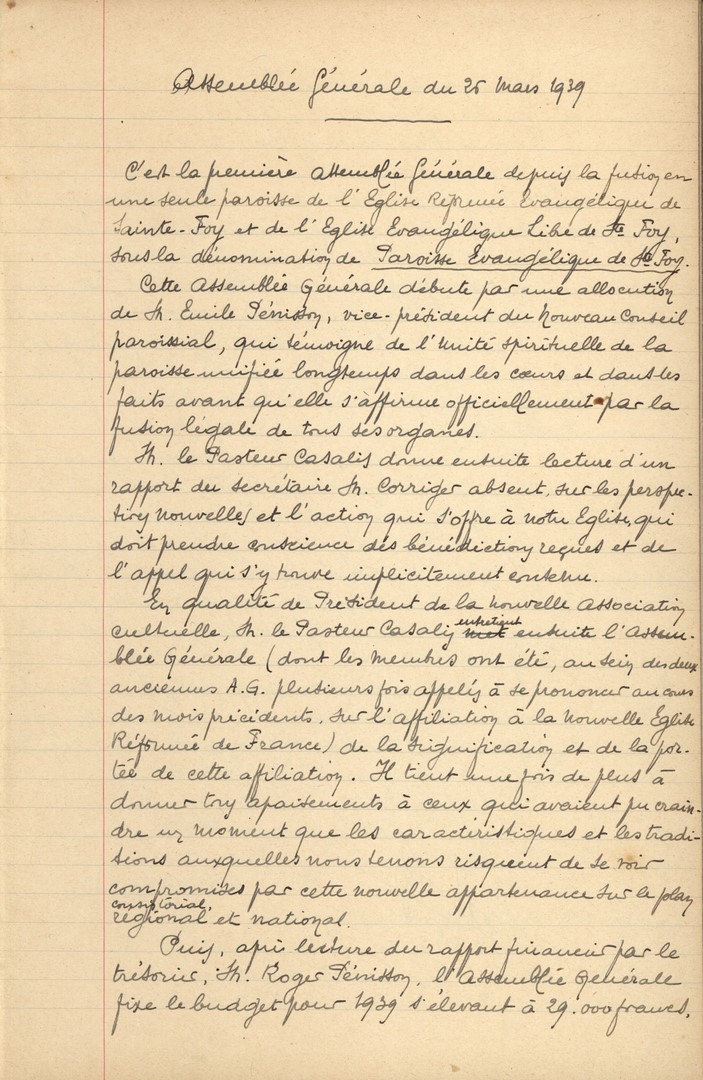 Assemblée Générale du 26 Mars 1939
C'est la première Assemblée Générale depuis la fusion en
une seule paroisse de l'Eglise Réformée Evangélique de
Sainte-Foy et de l'Eglise Evangélique Libre de Ste Foy,
sous la dénomination de Paroisse Evangélique de Ste Foy.
Cette Assemblée Générale débute par une allocution
de M. Emile Pénisson, vice-président du Nouveau Conseil
paroissial, qui témoigne de l'Unité spirituelle de la
paroisse unifiée longtemps dans les cœurs et dans les
faits avant qu'elle s'affirme officiellement par la
fusion légale de tous ses organes.
M. le Pasteur Casalis donne ensuite lecture d'un
rapport du Secrétaire M. Corriger absent, sur les perspec-
tives nouvelles et l'action qui s'offre à notre Eglise, qui
doit prendre conscience des bénédictions reçues et de
l'appel qui s'y trouve implicitement contenu.
En qualité de Président de la Nouvelle Association
cultuelle, M. le Pasteur Casalis entretient ensuite l'Assem-
blée Générale (dont les Membres ont été, au sein des deux
anciennes A.G. plusieurs fois appelés à se prononcer au cours
des mois précédents, sur l'affiliation à la Nouvelle Eglise
Réformée de France) de la signification et de la por-
tée de cette affiliation. Il tient une fois de plus à
donner tous apaisements à ceux qui avaient pu crain-
dre un moment que les caractéristiques et les tradi-
tions auxquelles nous tenons risquent de se voir
compromises par cette nouvelle appartenance sur le plan
consistorial,
régional et national.
Puis, après lecture du rapport financier par le
trésorier, M. Roger Pénisson, l'Assemblée Générale
fixe le budget pour 1939 s'élevant à 29.000 francs,